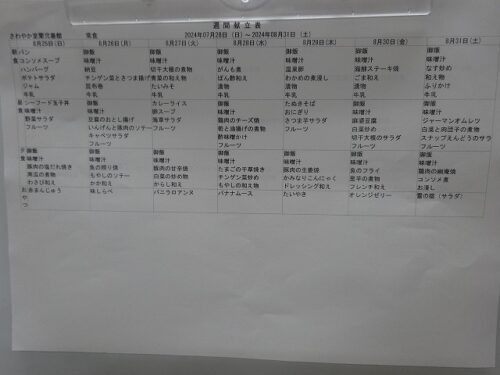 週間献立表
さわやか 常食 2024年07月28日(日)~2024年08月31日(土)
8月25日(日) 8月26日(月) 8月27日(火) 8月28日(水) 8月29日(木) 8月30日(金) 8月31日(土)
朝 パン 御飯 御飯 御飯 御飯 御飯 御飯
食 コンソメスープ 味噌汁 味噌汁 味噌汁 味噌汁 味噌汁 味噌汁
ハンバーグ 納豆 切干大根の煮物 がんも煮 温泉卵 海鮮ステーキ焼 なす炒め
ポテトサラダ チンゲン菜とさつま揚げ 青菜の和え物 ぽん酢和え わかめの煮浸し ごま和え 和え物
ジャム 昆布巻 たいみそ 漬物 漬物 漬物 ふりかけ
牛乳 牛乳 牛乳 牛乳 牛乳 牛乳 牛乳
昼 シーフード玉子丼 御飯 カレーライス 御飯 たぬきそば 御飯 御飯
食 味噌汁 味噌汁 味噌汁 おにぎり 味噌汁 味噌汁
野菜サラダ 豆腐のおとし揚げ 海草サラダ 鶏肉のチーズ焼 さつま芋サラダ 麻婆豆腐 ジャーマンオムレツ
フルーツ いんげんと豚肉のソテー フルーツ フルーツ 白菜炒め 白菜と肉団子の煮物
キャベツサラダ 酢味噌かけ 切干大根のサラダ スナップえんどうのサラダ
フルーツ フルーツ フルーツ フルーツ
夕 御飯 御飯 御飯 御飯 御飯 御飯 御飯
食 味噌汁 味噌汁 味噌汁 味噌汁 味噌汁 味噌汁 味噌汁
豚肉の塩だれ焼き 魚の照り焼 豚肉の甘辛焼 たまごの千草焼き 豚肉の生姜焼 魚のフライ 鶏肉の幽庵焼
南瓜の煮物 もやしのソテー 白菜の炒め物 チンゲン菜炒め かみなりこんにゃく 里芋の煮物 コンソメ煮
わさび和え かか和え からし和え もやしの和え物 ドレッシング和え フレンチ和え お浸し
お 赤まんじゅう 味しらべ バニラロアンヌ バナナムース たいやき オレンジゼリー 雪の宿(サラダ)
や
つ